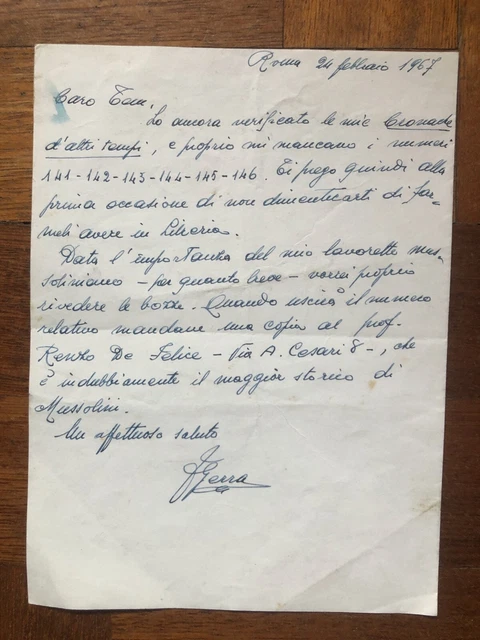 Roma 24 febbraio 1967
Caro Tom,
Ho ancora verificato le mie Cronache
d'altri tempi, e proprio mi mancano i numeri
141-142-143-144-145-146. Ti prego quindi alla
prima occasione di non dimenticarti di far-
meli avere in Libreria.
Data l'importanza del mio lavoretto mus-
soliniano - per quanto breve - vorrei proprio
rivedere le bozze. Quando uscirà il numero
relativo mandane una copia al prof.
Renzo De Felice - Via A. Cesari 8 -, che
è indubbiamente il maggior storico di
Mussolini.
Un affettuoso saluto